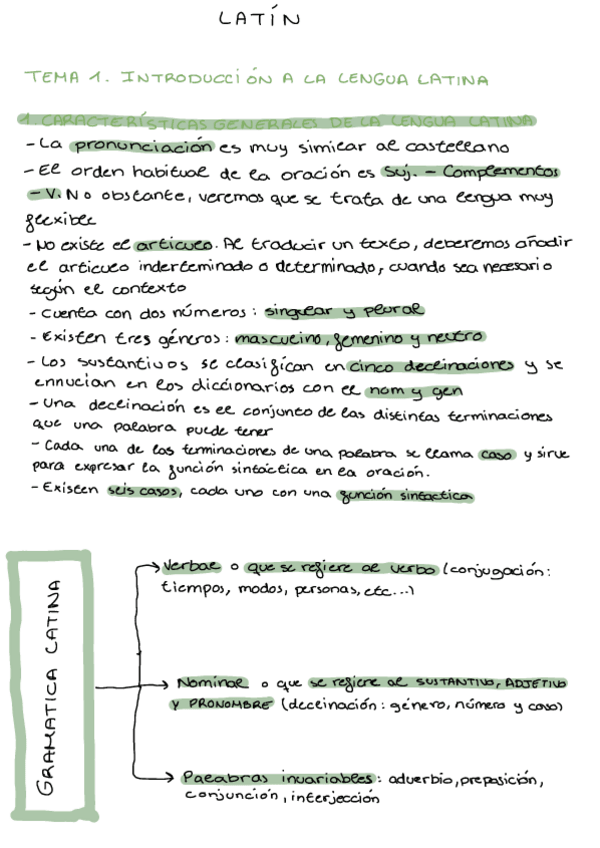 LATÍN
TEMA 1. INTRODUCCIÓN A LA LENGUA LATINA
1. CARACTERÍSTICAS GENERALES DE LA LENGUA LATINA
- La pronunciación es muy similar al castellano
- El orden habitual de la oración es Suj. - Complementos
- V. No obstante, veremos que se trata de una lengua muy
flexible
- No existe el artículo. Al traducir un texto, deberemos añadir
el artículo inderteminado o determinado, cuando sea necesario
según el contexto
- Cuenta con dos números: singular y plural
- Existen tres géneros: masculino, femenino y neutro
- Los sustantivos se clasifican en cinco declinaciones y se
ennucian en los diccionarios con el nom y gen
- Una declinación es el conjunto de las distintas terminaciones
que una palabra puede tener
- Cada una de las terminaciones de una palabra se llama caso y sirve
para expresar la función sintáctica en la oración.
- Existen seis casos, cada uno con una función sintactica
GRAMATICA LATINA
Verbal o que se refiere al verbo (conjugación:
tiempos, modos, personas, etc...)
Nominal o que se refiere al SUSTANTIVO, ADJETIVO
Y PRONOMBRE (declinación: género, número y caso)
Palabras invariables: adverbio, preposición,
conjunción, interjección